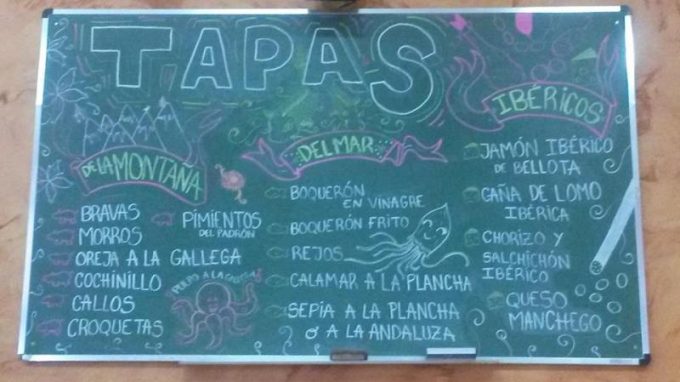 TAPAS
DE LA MONTAÑA
BRAVAS
PIMIENTOS
DEL PADRÓN
MORROS
OREJA A LA GALLEGA
COCHINILLO
CALLOS
CROQUETAS
PULPO A LA GALLEGA
DEL MAR
BOQUERÓN
EN VINAGRE
BOQUERÓN FRITO
REJOS
CALAMAR A LA PLANCHA
SEPIA A LA PLANCHA
Ó A LA ANDALUZA
IBÉRICOS
JAMÓN IBÉRICO
DE BELLOTA
CAÑA DE LOMO
IBÉRICA
CHORIZO Y
SALCHICHÓN
IBÉRICO
QUESO
MANCHEGO